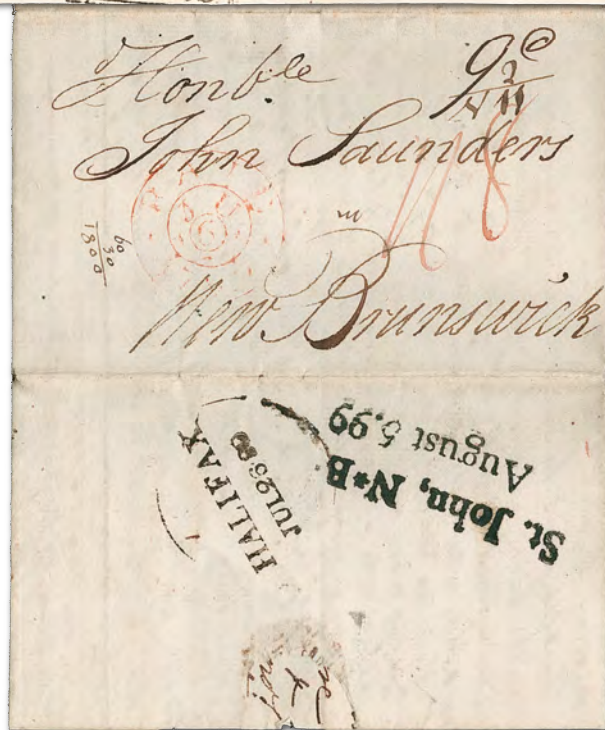 Honble
9d
2
N 11
John Saunders
in
1/8
60
30
1800
New Brunswick
HALIFAX
JUL 25 99
St. John, N*B
August 5.99